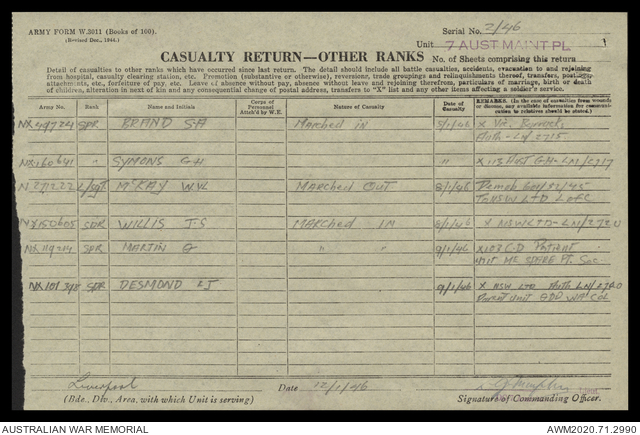 ARMY FORM W.3011 (Books of 100).
(Revised Dec., 1944.)
Serial No. 2/46
Unit 7 AUST MAINT PL
CASUALTY RETURN—OTHER RANKS
No. of Sheets comprising this return 1
Detail of casualties to other ranks which have occurred since last return. The detail should include all battle casualties, accidents, evacuation to and rejoining
from hospital, casualty clearing station, etc. Promotion (substantive or otherwise), reversions, trade groupings and relinquishments thereof, transfers, postings,
attachments, etc., forfeiture of pay, etc. Leave of absence without pay, absence without leave and rejoining therefrom, particulars of marriage, birth or death
of children, alteration in next of kin and any consequential change of postal address, transfers to "X" list and any other items affecting a soldier's service.
Army No. Rank Name and Initials Corps of Personnel Attch'd by W.E. Nature of Casualty Date of Casualty REMARKS. (In the case of casualties from wounds or disease, any available information for communication to relatives should be stated.)
SPR BRAND SA Marched in 8/1/46 X Vic. Barracks
Auth - LM/2715
NX160641 " SYMONS GH " X 113 Hosp LM/2717
L/Sgt McKAY W. Marched Out 8/1/46 Demob
To NSW LTD
NX150605 SPR WILLIS J-S Marched IN 8/1/46 X NSW LTD - LM/2720
SPR MARTIN G " " 9/1/46 X 103 C-D Patient
SPR DESMOND LJ 9/1/46 X NSW LTD Auth LM/2720
Parent Unit
Liverpool Date 12/1/46
(Bde., Div., Area, with which Unit is serving) Signature of Commanding Officer.
AUSTRALIAN WAR MEMORIAL AWM2020.71.2990